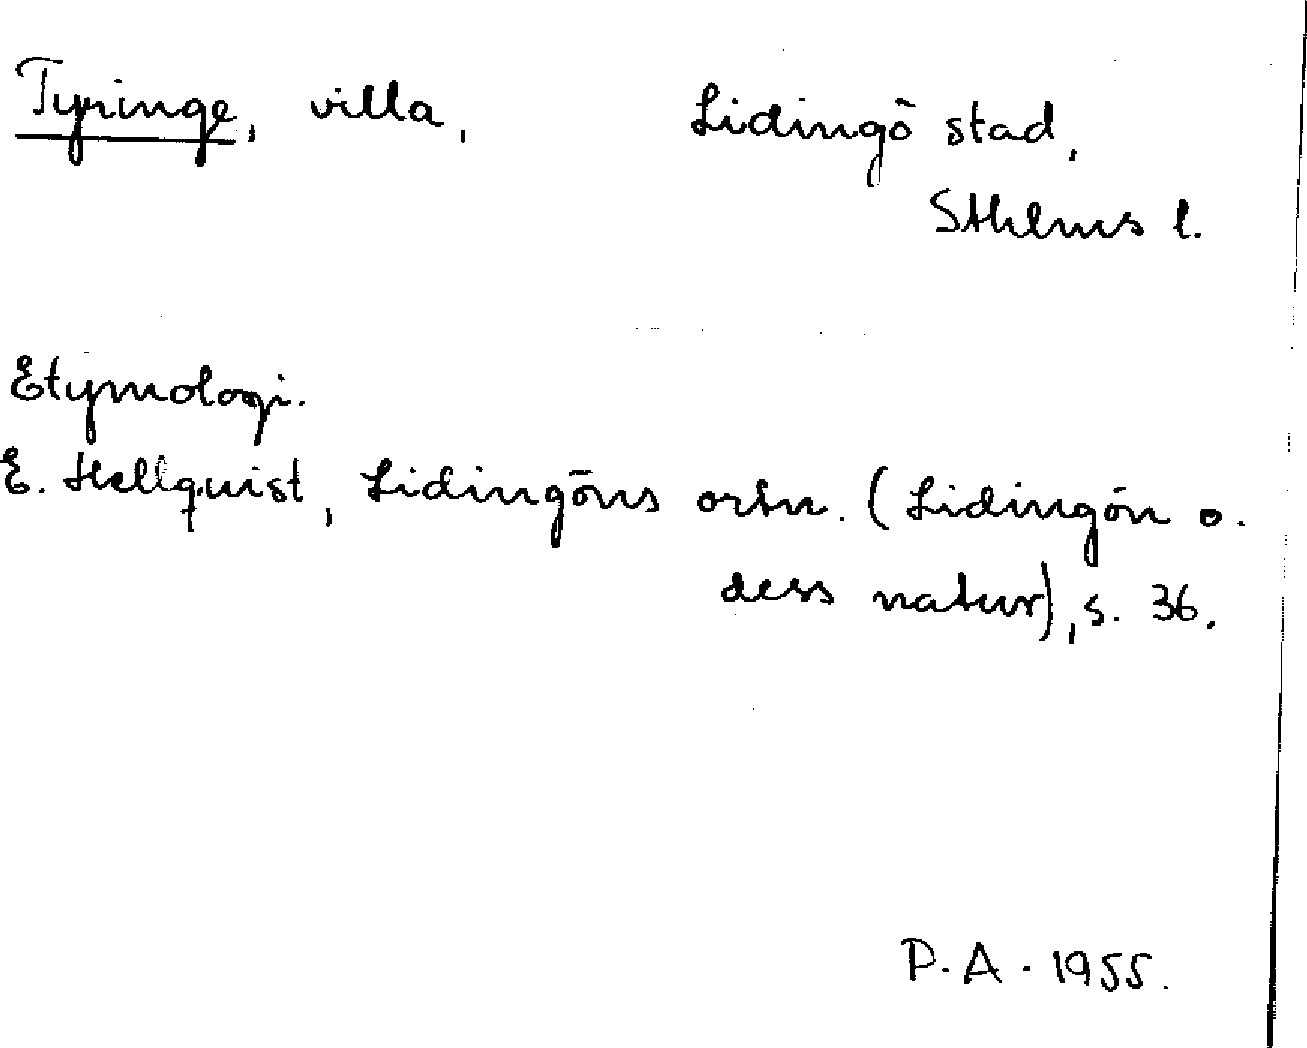 Tyringe, villa, Lidingö stad,
Sthlms l.
Etymologi.
E. Hellquist, Lidingöns ortn. (Lidingön o.
dess natur), s. 36.
P.A. 1955.